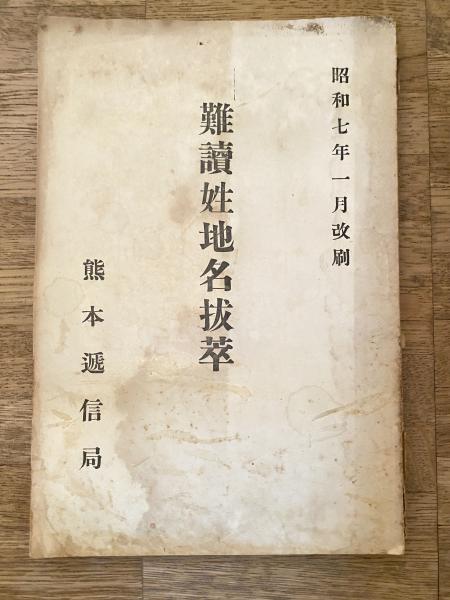 昭和七年一月改刷
難讀姓地名拔萃
熊本遞信局